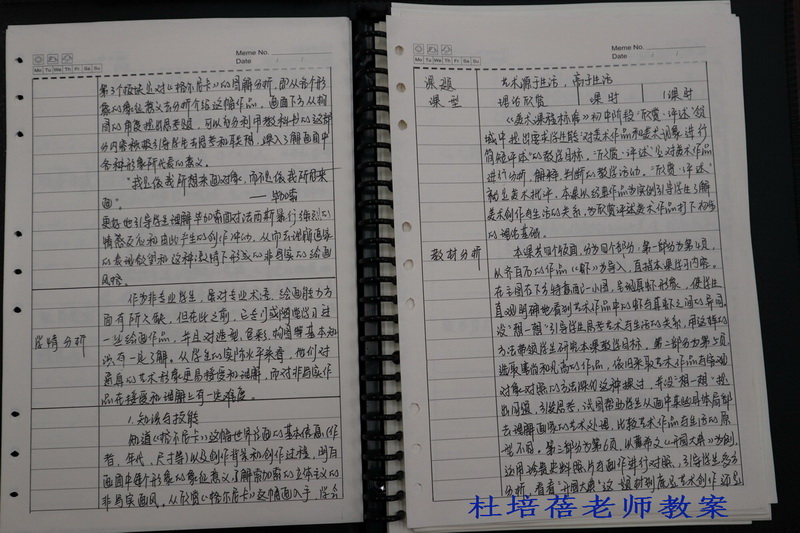 Memo No.
Date
Mo Tu We Th Fr Sa Su
第3个板块是对《格尔尼卡》的图解分析,即从各个形
象的象征意义去分析介绍这幅作品。画面下方从构
图的角度提出思考题,可以充分利用教科书的这部
分内容积极引导学生去思考和联想,深入了解画面中
各种形象所代表的意义。
"我是依我所想来画对象,而不是依我所见来
画"。
——毕加索
更好地引导学生理解毕加索面对法西斯暴行强烈的
情感反应和由此产生的创作冲动,从而去理解画家
的表现欲望和这种激情下形成的非写实的绘画
风格
学情分析
作为非专业学生,虽对专业术语、绘画能力方
面有所欠缺,但在此之前,已走过或欣赏学习过
一些绘画作品,并且对造型、色彩、构图等基本知
识有一定了解。从学生的实际水平来看,他们对
逼真的艺术形象更易接受和理解,而对非写实作
品在接受和理解上有一定难度。
1.知识与技能
知道《格尔尼卡》这幅世界名画的基本信息(作
者、年代、尺寸等)以及创作背景和创作过程,明白
画面中每个形象的象征意义了解毕加索的立体主义的
非写实画风。从欣赏《格尔尼卡》这幅画入手,学会
Memo No.
Date
Mo Tu We Th Fr Sa Su
课题
艺术源于生活,高于生活
课型
理论欣赏
课时
1课时
《美术课程标准》初中阶段"欣赏·评述"领
域中提出要求学生能"对美术作品和美术现象进行
简短评述"的教学目标。"欣赏·评述"是对美术作品
进行分析、解释、判断的教学活动。"欣赏·评述"
就是美术批评。本课以经典作品为实例引导学生了解
美术创作与生活的关系,为欣赏评述美术作品打下初步
的理论基础。
教材分析
本课共四个版面,分为四个部分:第一部分为第1页,
从齐白石的作品《虾》为导入,直指本课学习内容。
在主图右下方特意配以小图,呈现真虾形象,使学生
直观明确地看到艺术作品中的虾与真虾之间的异同。
设"想一想"引导学生思考艺术与生活的关系,用这样的
方法带领学生研究本课教学目标。第二部分为第2页
选取莫奈和凡高的作品,依旧采取艺术作品与实际
对象对照的方法深化这种探讨,并设"想一想"提
出问题,引发思考,试图帮助学生从画中某些具体局部
去理解画家的艺术处理,比较艺术作品与生活的原
型不同。第三部分为第6页,以董希文《开国大典》为例
运用珍贵史料照片与画作进行对照,引导学生多方
分析,看看"开国大典"这一题材到底是艺术创作还是
杜培蓓老师教案